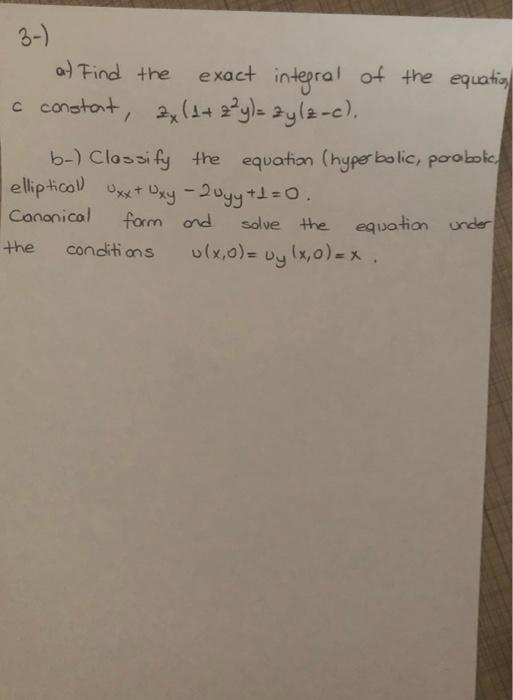 3-)
a-) Find the exact integral of the equation
c constant, zₓ(1+z²y)=zy(z-c).
b-) Classify the equation (hyperbolic, parabolic,
elliptical) uₓₓ+uₓy-2uyy+1=0.
Canonical form and solve the equation under
the conditions u(x,0)=uy(x,0)=x.